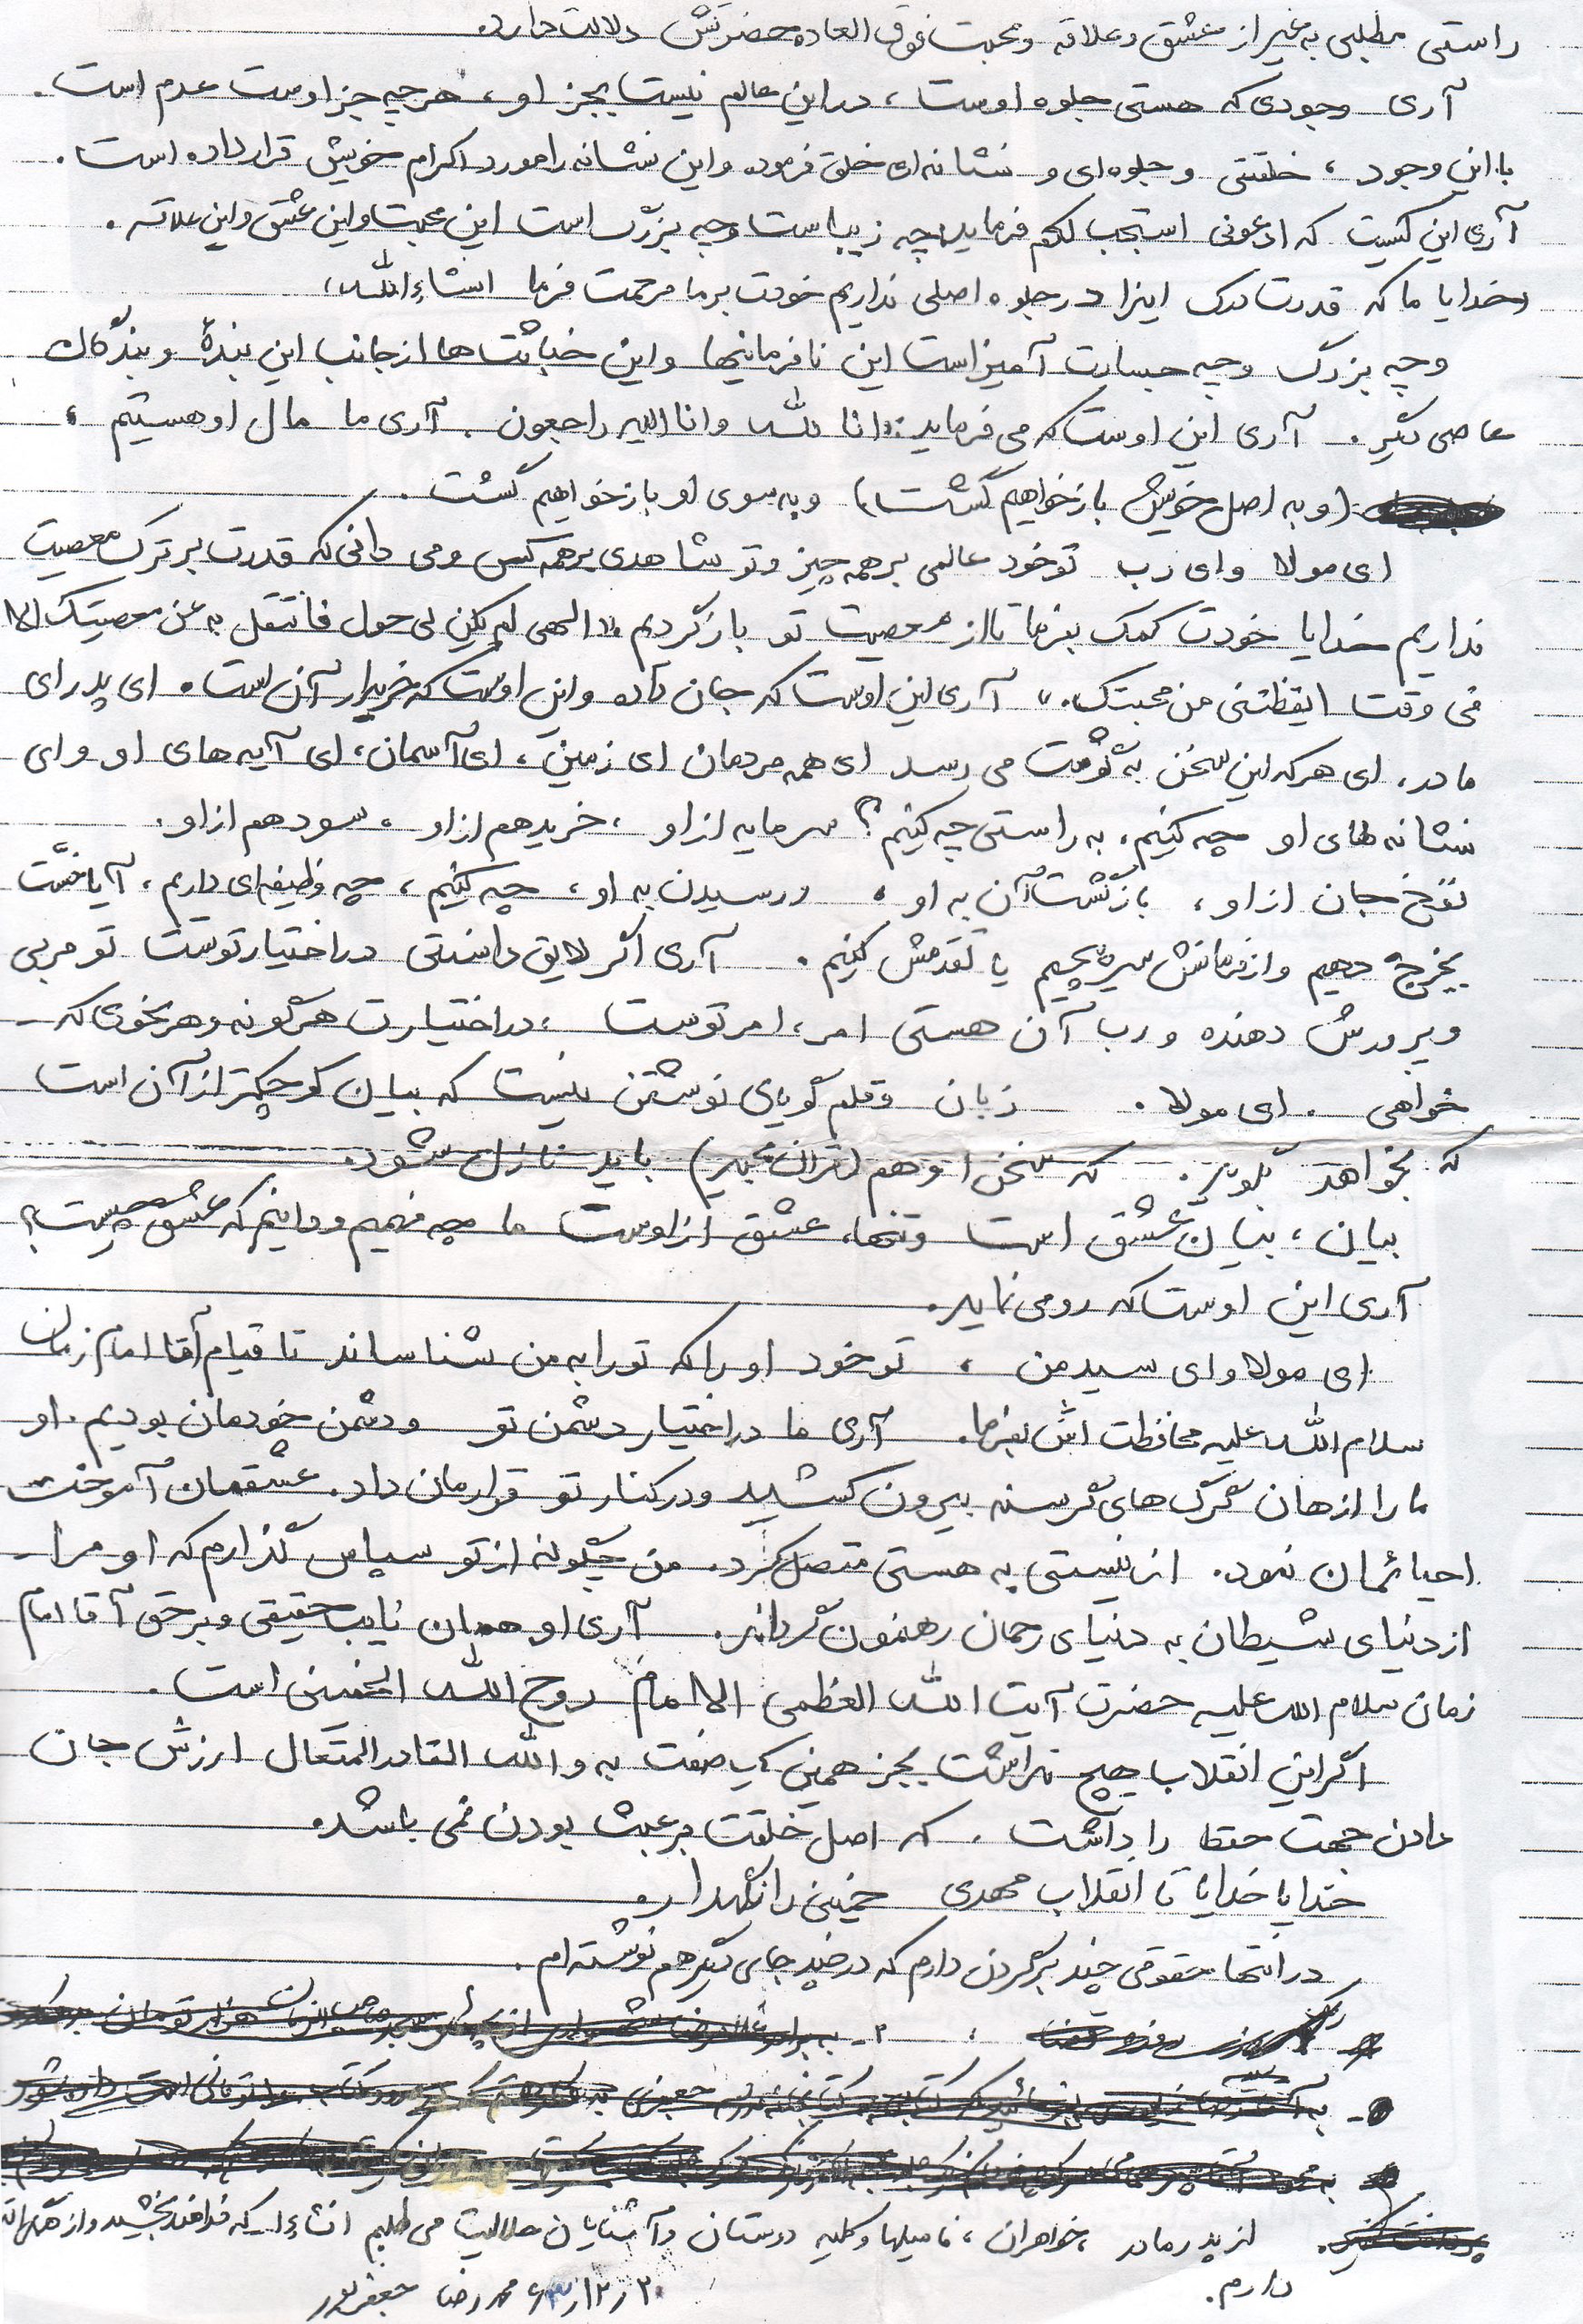 راستی مطلبی به غیر از عشق و علاقه و محبت فوق العاده حضرتش دلالت دارد.
آری وجودی که هستی جلوه اوست، در این عالم نیست بجز او، هر چه جز اوست عدم است.
با این وجود، خلقتی و جلوه ای و نشانه ای خلق فرموده و این نشانه را مورد اکرام خویش قرار داده است.
آری این کیست که ادعونی استجب لکم فرماید، چه زیباست و چه بزرگ است این محبت و این عشق و این علاقه.
خدایا ما که قدرت درک اینرا در جلوه اصلی نداریم خودت بر ما مرحمت فرما انشاءالله،
و چه بزرگ و چه جسارت آمیز است این نافرمانیها و این خباثت ها از جانب این بندهٔ و بندگان
عاصی دگیر. آری این اوست که می فرماید: انا لله و انا الیه راجعون. آری ما مال او هستیم،
(و به اصل خویش باز خواهیم گشت) و به سوی او باز خواهیم گشت.
ای مولا و ای رب تو خود عالمی بر همه چیز و تو شاهدی بر همه کس و می دانی که قدرت بر ترک معصیت
نداریم خدایا خودت کمک بفرما تا از معصیت تو باز گردیم «الهی لم یکن لی حول فانتقل به عن معصیتک الا
فی وقت ایقظتنی من محبتک.» آری این اوست که جان داده و این اوست که خریدار آن است. ای پدر ای
مادر، ای هر که این سخن به گوشت می رسد ای همه مردمان ای زمین، ای آسمان، ای آیه های او و ای
نشانه های او چه کنیم، به راستی چه کنیم؟ سرمایه از او، خرید هم از او، سود هم از او.
نفخ جان از او، بازگشت آن به او، و رسیدن به او، چه کنیم، چه وظیفه ای داریم، آیا خسّت
بخرج دهیم و از فرمانش سرپیچیم یا تقدیمش کنیم. آری اگر لایق دانستی در اختیار توست تو مربی
و پرورش دهنده و رب آن هستی امر، امر توست، در اختیارت هر گونه و هر نحوی که
خواهی. ای مولا. زبان و قلم گویای نوشتن نیست که بیان کوچکتر از آن است
که بخواهد بگوید. که سخن او هم (قرآن مجید) باید نازل شود.
بیان، بیان عشق است و تنها، عشق از اوست ما چه فهمیم و دانیم که عشق چیست؟
آری این اوست که رو می نماید.
ای مولا و ای سید من، تو خود او را که تو را به من شناساند تا قیام آقا امام زمان
سلام الله علیه محافظت اش بفرما. آری ما در اختیار دشمن تو و دشمن خودمان بودیم. او
ما را از دهان گرگ های گرسنه بیرون کشید و در کنار تو قرارمان داد. عشقمان آموخت
احیائمان نمود. از نیستی به هستی متصل کرد. من چگونه از تو سپاس گذارم که او مرا
از دنیای شیطان به دنیای رحمان رهنمون گرداند. آری او همان نایب حقیقی و بر حق آقا امام
زمان سلام الله علیه حضرت آیت الله العظمی الامام روح الله الخمینی است.
اگر این انقلاب هیچ نداشت بجز همین یک صفت به والله القادر المتعال ارزش جان
دادن جهت حفظ را داشت. که اصل خلقت بر عبث بودن نمی باشد.
خدایا خدایا تا انقلاب مهدی خمینی را نگهدار.
در انتها حقوقی چند بر گردن دارم که در چند جای دیگر هم نوشته ام.
۲- به برادر غلامرضا از هزار تومان
به
به
از پدر و مادر، خواهران، فامیلها و کلیه دوستان و آشنایان حلالیت می طلبم انشاءا... که خداوند بخشید و از همگی
دارم.
۲۰/۱۲/۶۳ محمد رضا جعفرپور